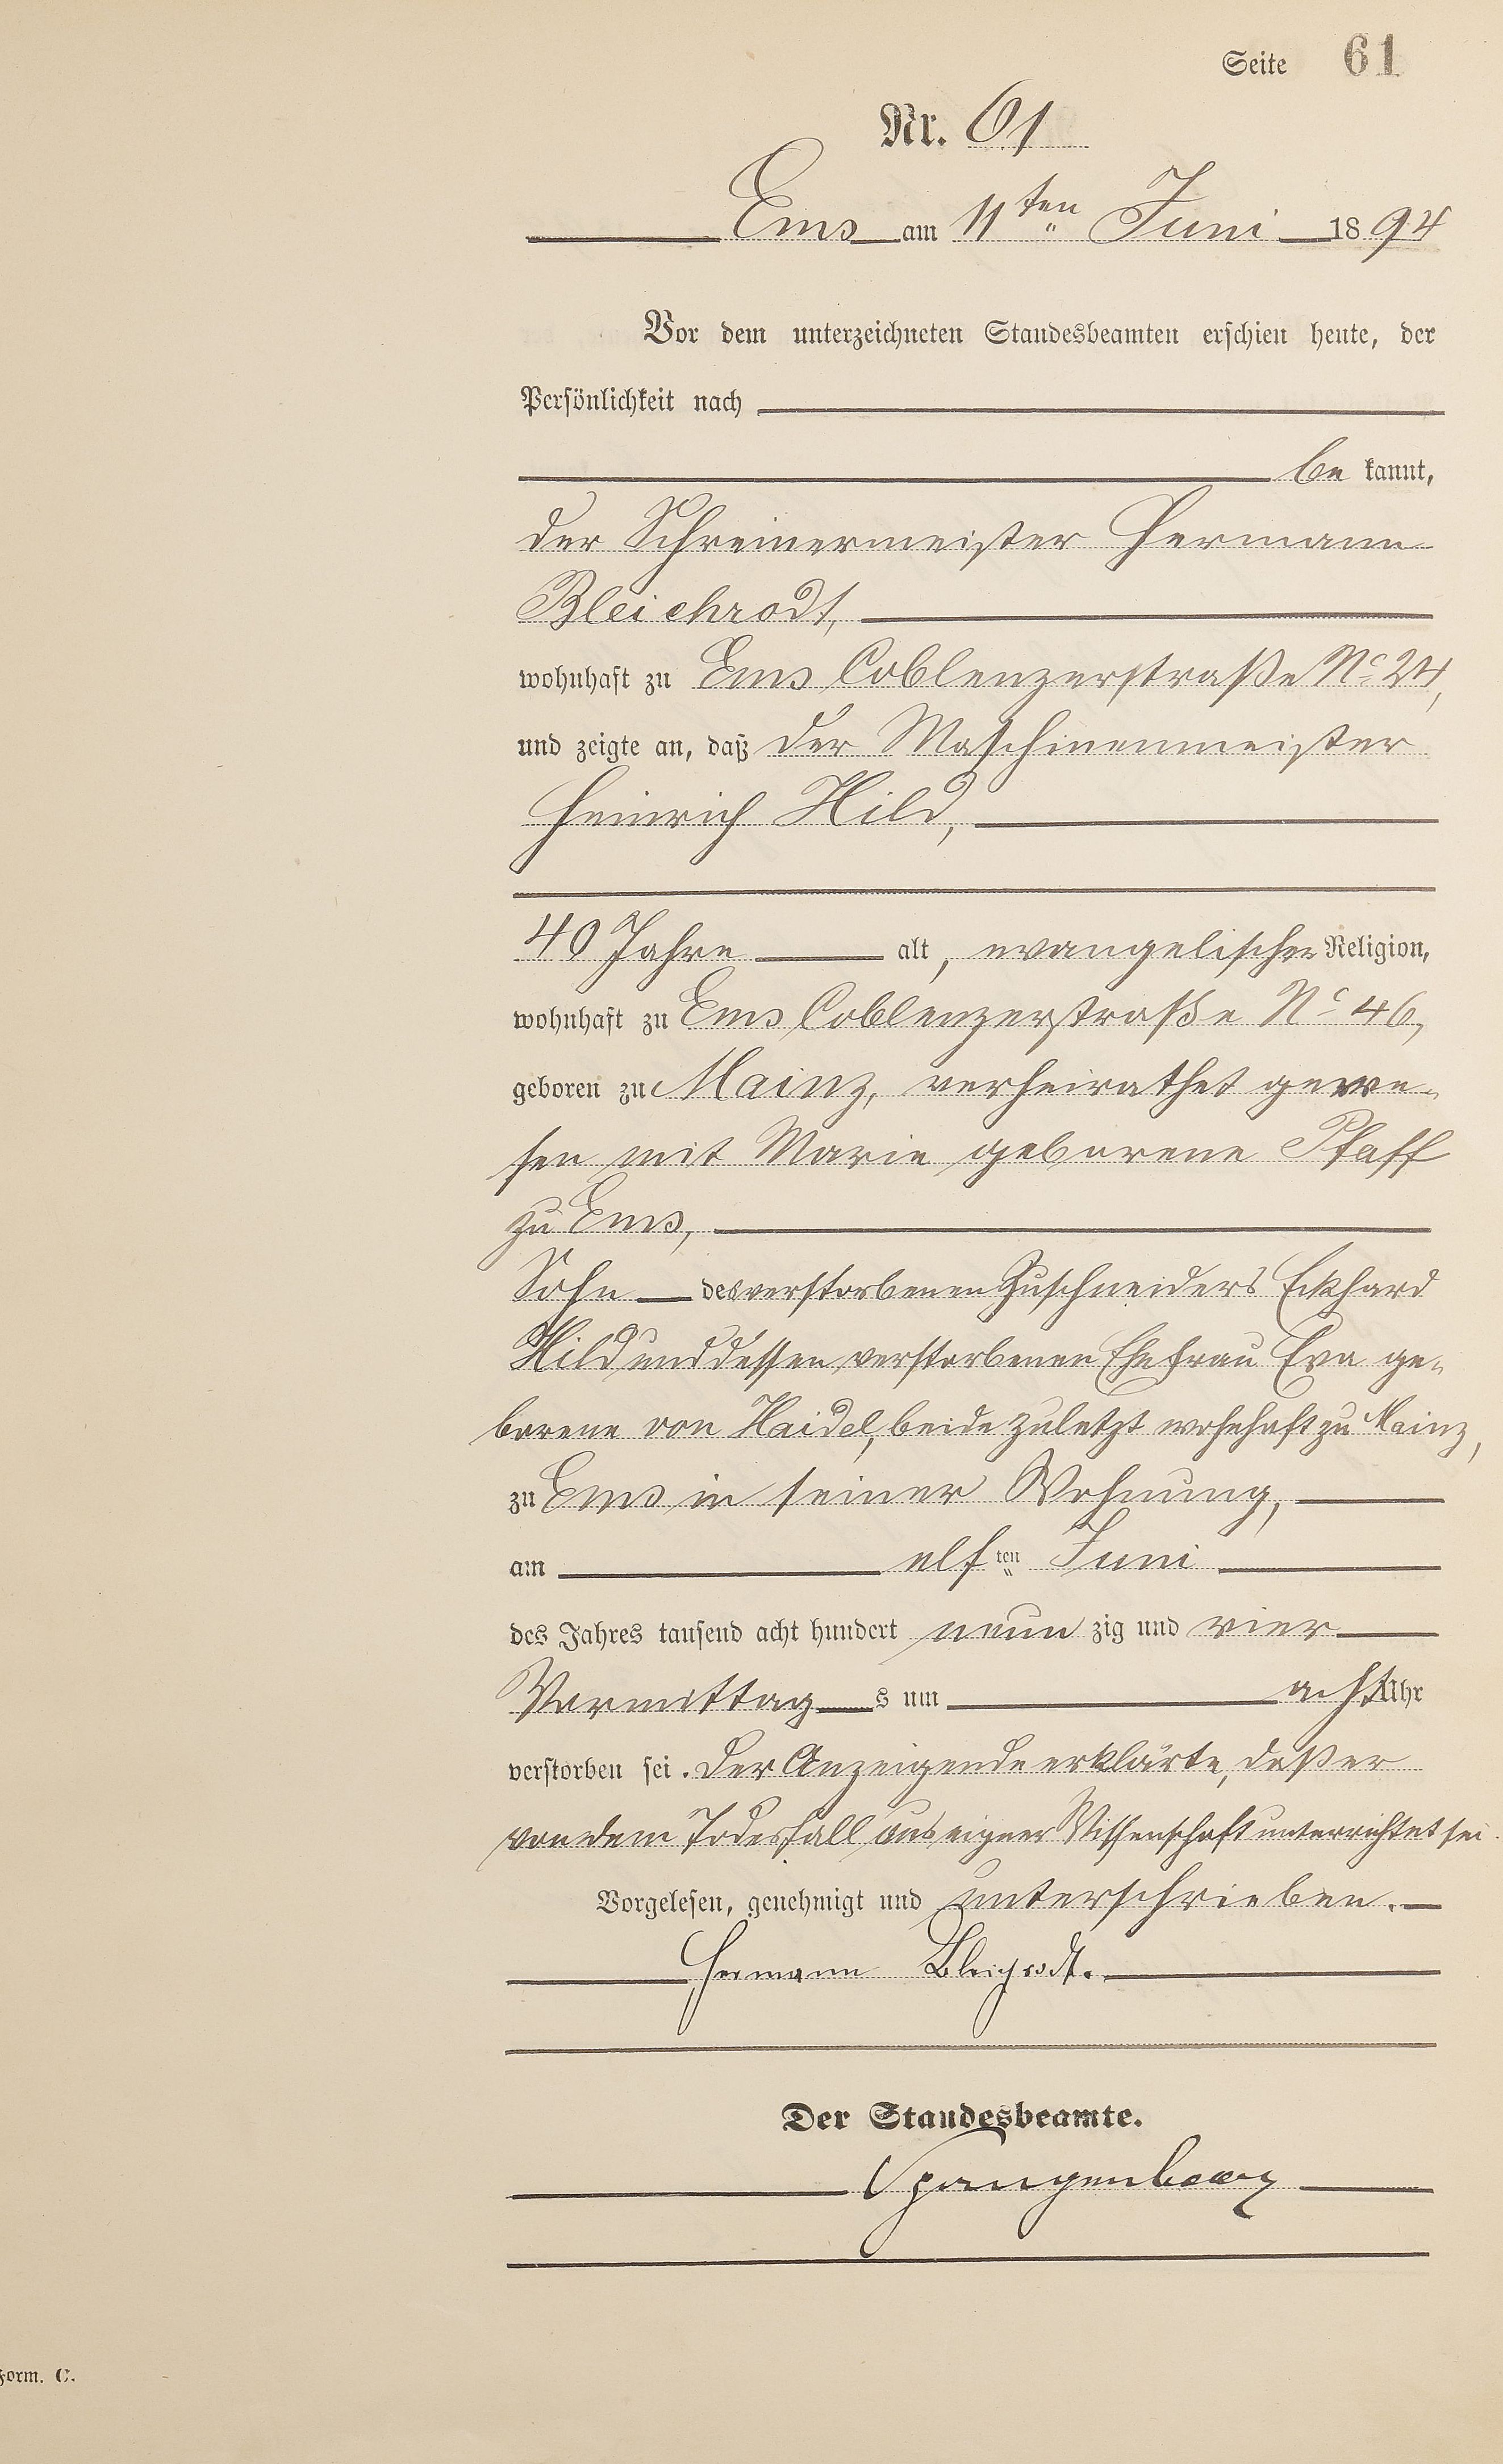 Seite 61
Nr. 61
Ems am 11ten Juni 1894
Vor dem unterzeichneten Standesbeamten erschien heute, der
Persönlichkeit nach
be kannt,
der Schreinermeister Hermann
Bleichrodt,
wohnhaft zu Ems Coblenzerstraße No 24,
und zeigte an, daß der Maschinenmeister
Heinrich Hild,
40 Jahre alt, evangelischer Religion,
wohnhaft zu Ems Coblenzerstraße No 46,
geboren zu Mainz, verheirathet gewe-
sen mit Marie geborene Pfaff
zu Ems,
Sohn des verstorbenen Zuschneiders Eckhard
Hild und dessen verstorbenen Ehefrau Eva ge-
borene von Haidel, beide zuletzt wohnhaft zu Mainz,
zu Ems in seiner Wohnung,
am elften Juni
des Jahres tausend acht hundert neun zig und vier
Vormittags um acht Uhr
verstorben sei. Der Anzeigende erklärte, daß er
von dem Todesfall aus eigner Wissenschaft unterrichtet sei.
Vorgelesen, genehmigt und unterschrieben.
Hermann Bleichrodt.
Der Standesbeamte.
Spangenberg
Form. C.